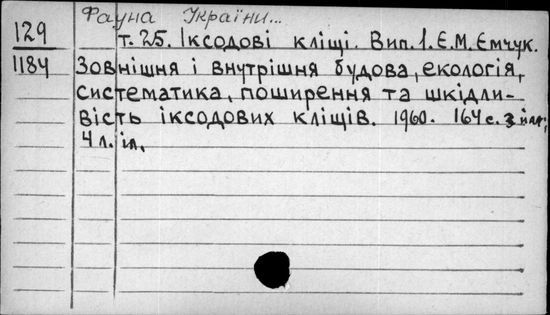 Фауна України...
129 т. 25. Іксодові кліщі. Вип. 1. Є.М. Ємчук.
1184 Зовнішня і внутрішня будова, екологія,
систематика, поширення та шкідли-
вість іксодових кліщів. 1960. 164 с. з ілл.;
4 л. іл.